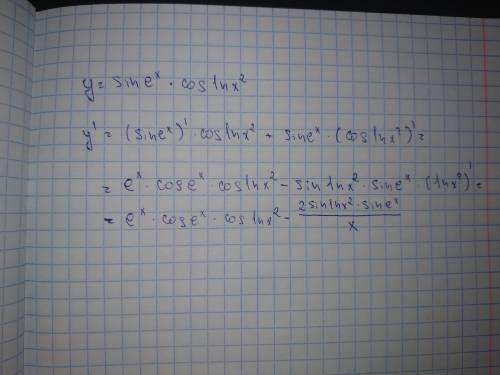 y = sin eˣ · cos ln x²
y' = (sin eˣ)' · cos ln x² + sin eˣ · (cos ln x²)' =
= eˣ · cos eˣ · cos ln x² − sin ln x² · sin eˣ · (ln x²)' =
= eˣ · cos eˣ · cos ln x² − (2 sin ln x² · sin eˣ) / x